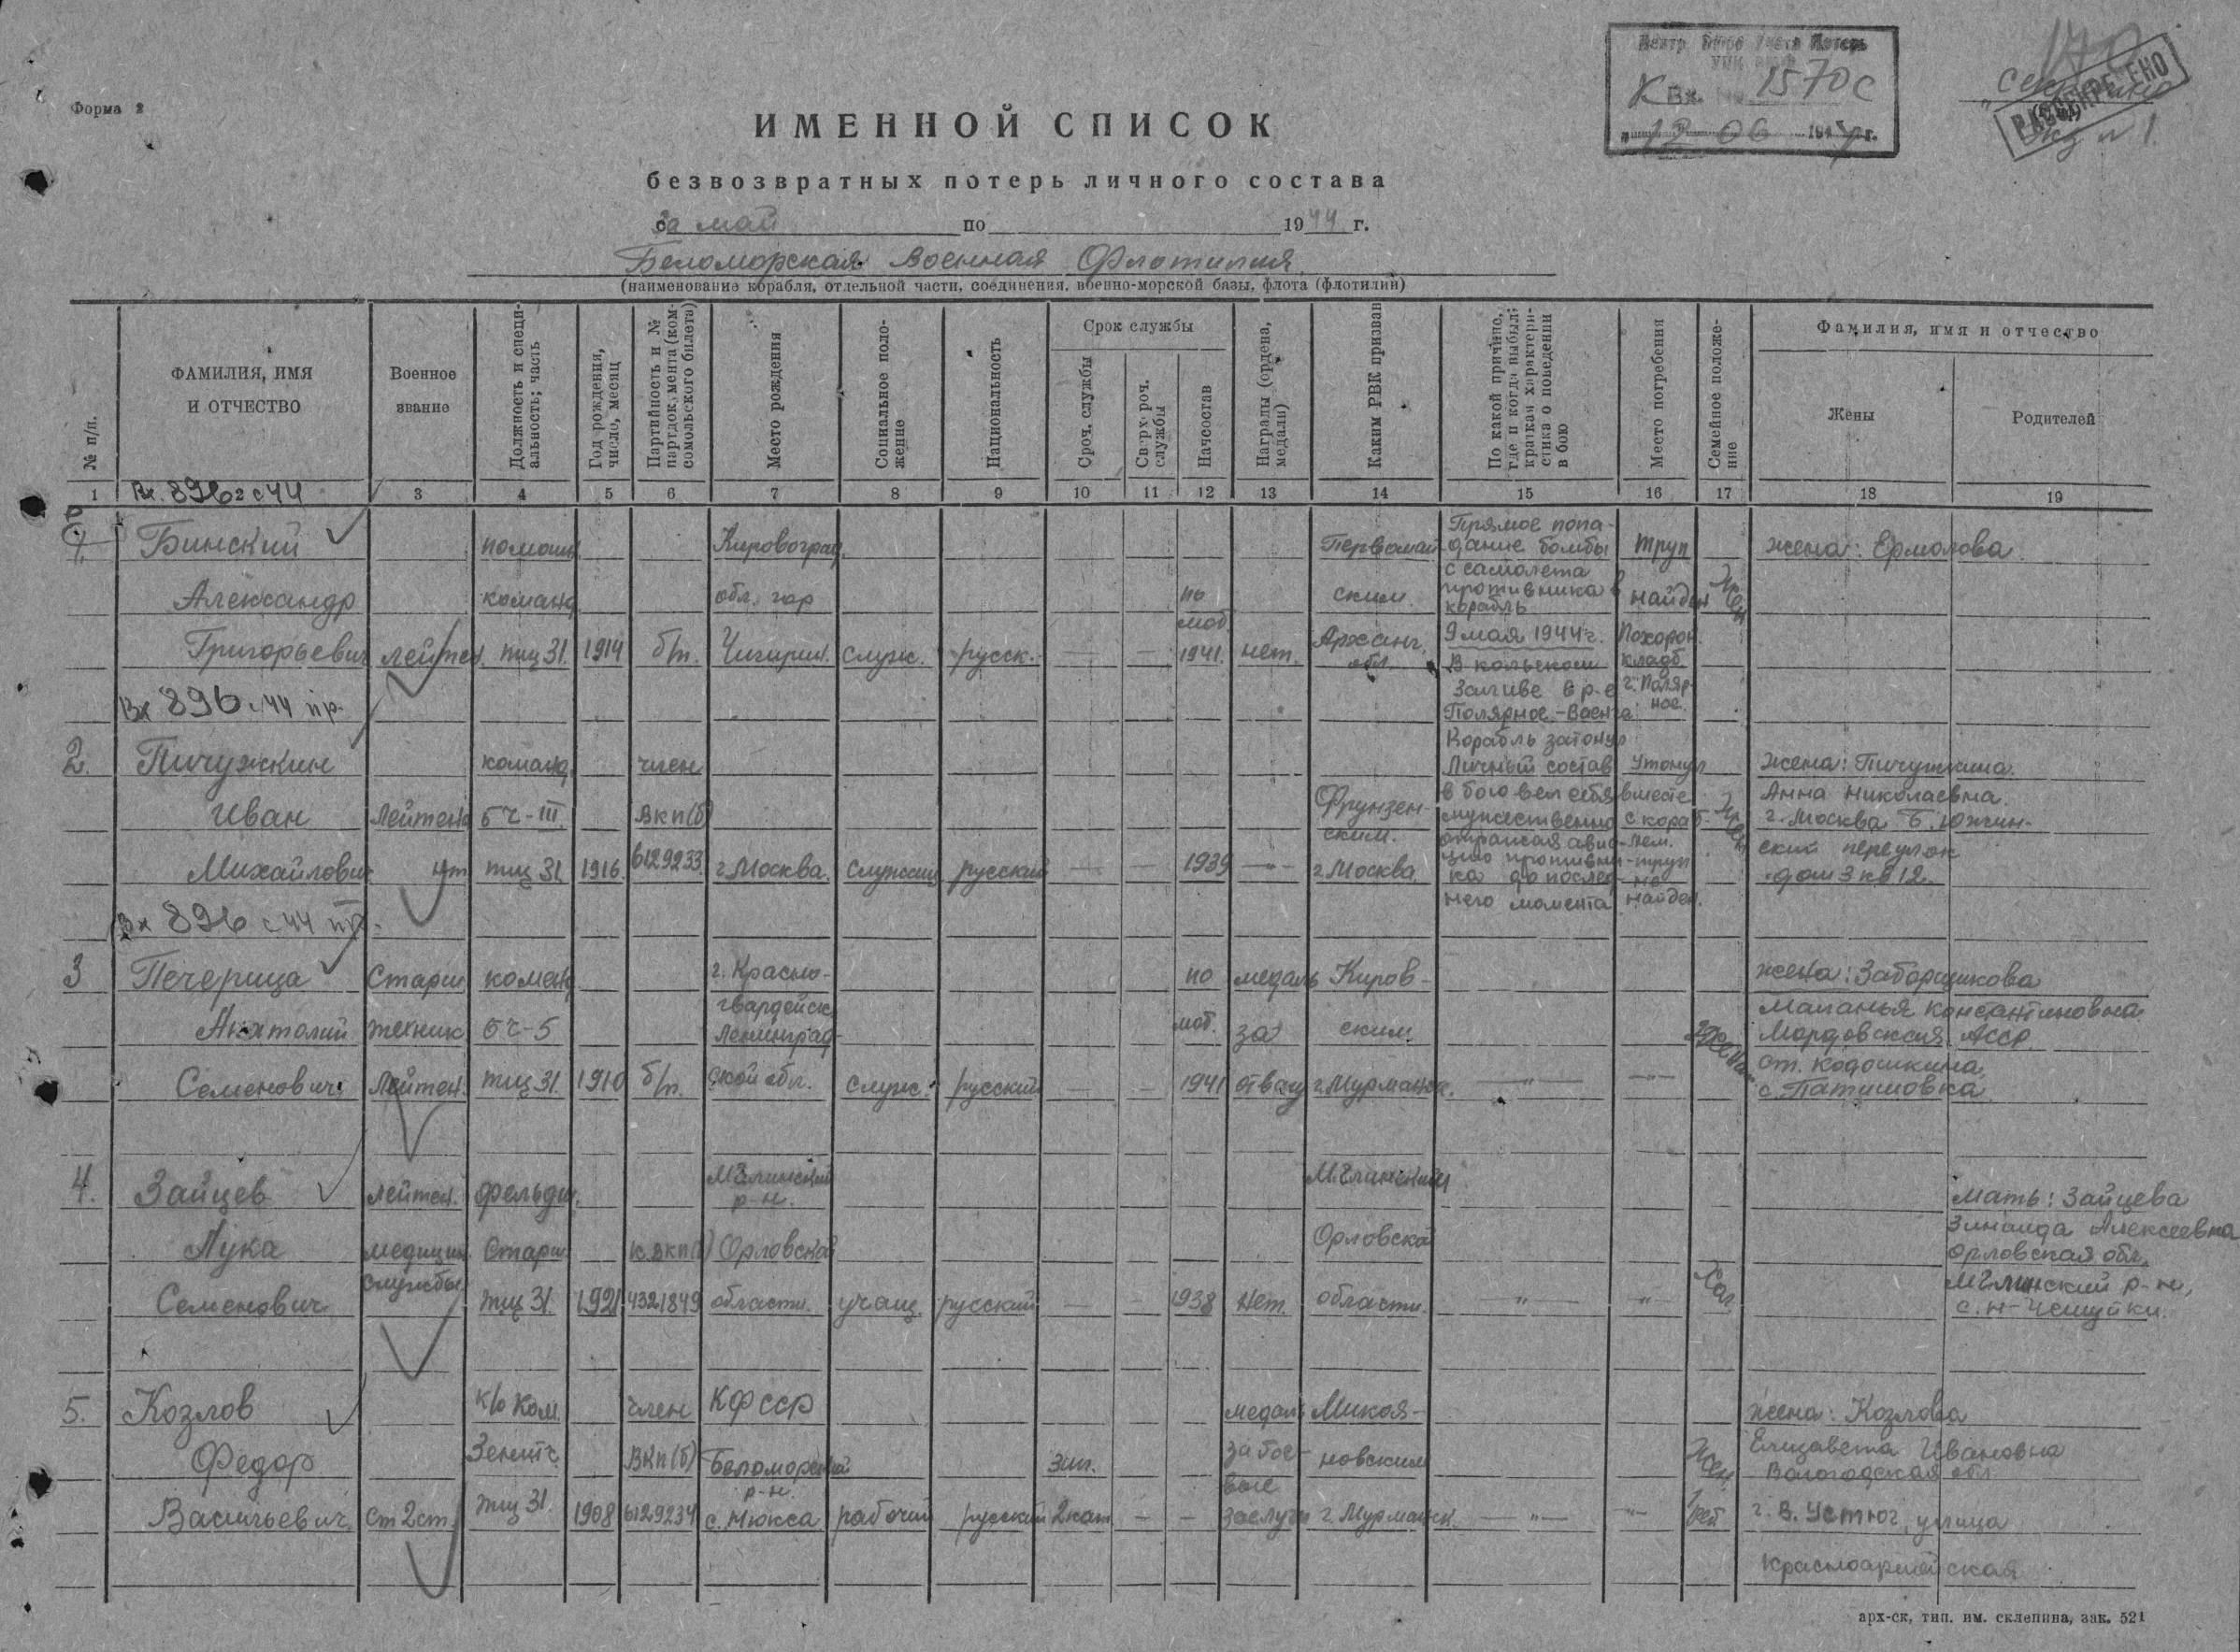 Форма 2
Центр. Бюро Учета Потерь
К Вх. 1570с
"12" 06 194 г.
РАССЕКРЕЧЕНО
ИМЕННОЙ СПИСОК
безвозвратных потерь личного состава
за май по 1944 г.
Беломорская Военная Флотилия
(наименование корабля, отдельной части, соединения, военно-морской базы, флота (флотилии)
№ п/п.
ФАМИЛИЯ, ИМЯ И ОТЧЕСТВО
Военное звание
Должность и специальность; часть
Год рождения, число, месяц
Партийность и № партдокумента (комсомольского билета)
Место рождения
Социальное положение
Национальность
Срок службы
Сроч. службы
Сверхсроч. службы
Начсостав
Награды (ордена, медали)
Каким РВК призван
По какой причине, где и когда выбыл; краткая характеристика о поведении в бою
Место погребения
Семейное положение
Фамилия, имя и отчество
Жены
Родителей
1 Вх. 896 с 44 3 4 5 6 7 8 9 10 11 12 13 14 15 16 17 18 19
1
Бинский
Александр
Григорьевич
лейтен.
помощн.
команд.
тщ 31.
1914
б/п.
Кировоград.
обл. гор
Чигирин.
служ.
русск.
— —
по
моб.
1941.
нет.
Первомай-
ским.
Арханг.
обл.
Прямое попа-
дание бомбы
с самолета
противника в
корабль
9 мая 1944 г.
В кольском
Заливе в р-е
Полярное-Ваенга
Корабль затонул
Личный состав
в бою вел себя
мужественно
отражая авиа-
цию противни-
ка до послед-
него момента
труп
найден
Похорон.
кладб.
г. Поляр-
ное.
жен
жена: Ермолова
Вх 896 с 44 пр.
2.
Пичужкин
Иван
Михайлович
Лейтена
нт
команд.
БЧ-III
тщ 31
1916.
член
ВКП(б)
6129233.
г. Москва.
Служащ
русский
— —
1939
—
Фрунзен-
ским.
г. Москва.
Утонул
вместе
с кораб-
лем.
труп
не
найден.
жен
жена: Пичужкина
Анна Николаевна.
г. Москва Б. Южин-
ский переулок
дом 3 кв 12.
Вх 896 с 44 пр.
3
Печерица
Анатолий
Семенович.
Старш.
техник
Лейтен.
команд
БЧ-5
тщ 31.
1910
б/п.
г. Красно-
гвардейск
Ленинград-
ской обл.
служ.
русский
— —
по
моб.
1941
медаль
за
отвагу
Киров-
ским.
г. Мурманск.
— " —
— " —
Женат
жена: Заборщикова
Маланья Константиновна
Мордовская АССР
ст. Кадошкина
4.
Зайцев
Лука
Семенович
лейтен.
медицин.
службы
фельдш.
Старш.
тщ 31.
1921
к. ВКП(б)
4321849
Мглинский
р-н.
Орловской
области.
учащ.
русский
— —
1938
нет.
Мглинский
Орловской
области.
— " —
"
Хол.
мать: Зайцева
Зинаида Алексеевна
Орловская обл.
Мглинский р-н,
5.
Козлов
Федор
Васильевич
Ст 2 ст.
к/о ком.
Зенитч.
тщ 31.
1908
член
ВКП(б)
6129234
КФССР
Беломорский
р-н.
с. Нюкса
рабочий
русский
— —
медаль
за бое-
вые
заслуги
Микоя-
новским
г. Мурманск.
— " —
— " —
жен.
жена: Козлова
Елизавета Ивановна
Вологодская обл
г. В. Устюг, улица
Красноармейская
арх-ск, тип. им. склепина, зак. 521